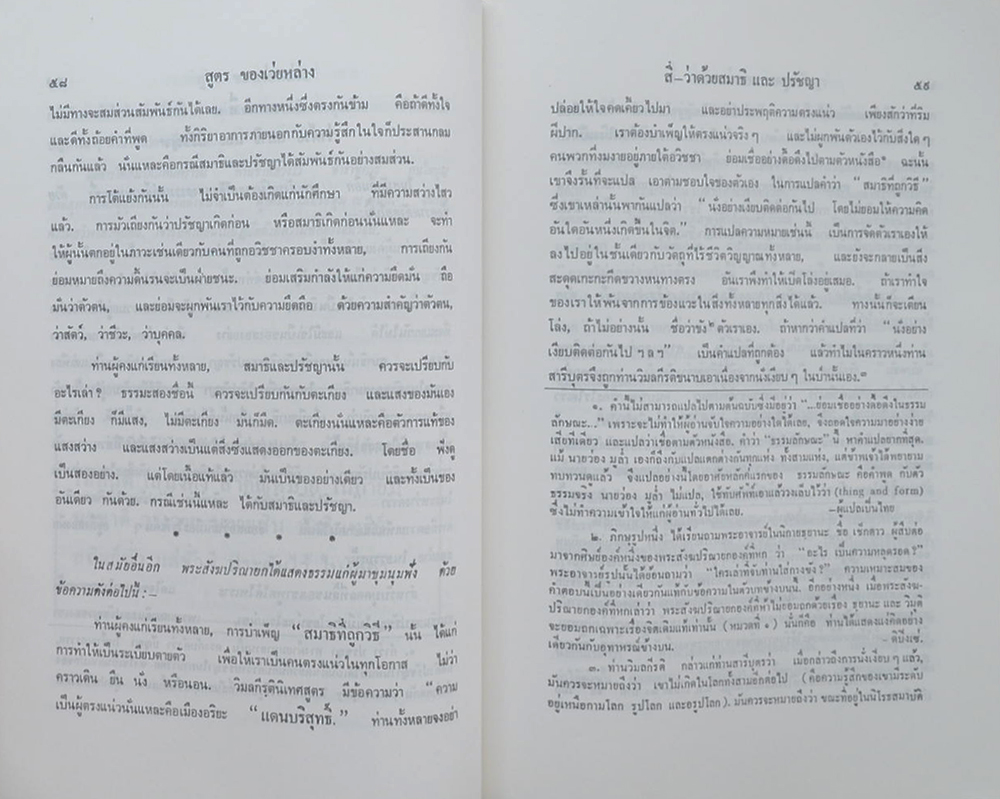 ๕๘
สูตร ของเว่ยหล่าง
ไม่มีทางจะสมส่วนสัมพันธ์กันได้เลย. อีกทางหนึ่งซึ่งตรงกันข้าม คือถ้าดีทั้งใจ
และดีทั้งถ้อยคำที่พูด ทั้งกิริยาอาการภายนอกกับความรู้สึกในใจก็ประสานกลม
กลืนกันแล้ว นั่นแหละคือกรณีสมาธิและปรัชญาได้สัมพันธ์กันอย่างสมส่วน.
การโต้แย้งกันนั้น ไม่จำเป็นต้องเกิดแก่นักศึกษา ที่มีความสว่างไสว
แล้ว. การมัวเถียงกันว่าปรัชญาเกิดก่อน หรือสมาธิเกิดก่อนนั่นแหละ จะทำ
ให้ผู้นั้นตกอยู่ในภาวะเช่นเดียวกับคนที่ถูกอวิชชาครอบงำทั้งหลาย, การเถียงกัน
ย่อมหมายถึงความดิ้นรนจะเป็นฝ่ายชนะ. ย่อมเสริมกำลังให้แก่ความยึดมั่น ถือ
มั่นว่าตัวตน, และย่อมจะผูกพันเราไว้กับความยึดถือ ด้วยความสำคัญว่าตัวตน,
ว่าสัตว์, ว่าชีวะ, ว่าบุคคล.
ท่านผู้คงแก่เรียนทั้งหลาย, สมาธิและปรัชญานั้น ควรจะเปรียบกับ
อะไรเล่า? ธรรมะสองชื่อนี้ ควรจะเปรียบกันกับตะเกียง และแสงของมันเอง
มีตะเกียง ก็มีแสง, ไม่มีตะเกียง มันก็มืด. ตะเกียงนั่นแหละคือตัวการแท้ของ
แสงสว่าง และแสงสว่างเป็นแต่สิ่งซึ่งแสดงออกของตะเกียง. โดยชื่อ ฟังดู
เป็นสองอย่าง. แต่โดยเนื้อแท้แล้ว มันเป็นของอย่างเดียว และทั้งเป็นของ
อันเดียว กันด้วย. กรณีเช่นนี้แหละ ได้กับสมาธิและปรัชญา.
* * * *
ในสมัยอื่นอีก พระสังฆปริณายกได้แสดงธรรมแก่ผู้มาชุมนุมฟัง ด้วย
ข้อความดังต่อไปนี้ : —
ท่านผู้คงแก่เรียนทั้งหลาย, การบำเพ็ญ “สมาธิที่ถูกวิธี” นั้น ได้แก่
การทำให้เป็นระเบียบตายตัว เพื่อให้เราเป็นคนตรงแน่วในทุกโอกาส ไม่ว่า
คราวเดิน ยืน นั่ง หรือนอน. วิมลกีรตินิทเทศสูตร มีข้อความว่า “ความ
เป็นผู้ตรงแน่วนั่นแหละคือเมืองอริยะ “แดนบริสุทธิ์.” ท่านทั้งหลายจงอย่า
สี่–ว่าด้วยสมาธิ และ ปรัชญา
๕๙
ปล่อยให้ใจคดเคี้ยวไปมา และอย่าประพฤติความตรงแน่ว เพียงสักว่าที่ริม
ฝีปาก. เราต้องบำเพ็ญให้ตรงแน่วจริง ๆ และไม่ผูกพันตัวเองไว้กับสิ่งใด ๆ
คนพวกที่งมงายอยู่ภายใต้อวิชชา ย่อมเชื่ออย่างดื้อดึงไปตามตัวหนังสือ๑ ฉะนั้น
เขาจึงรั้นที่จะแปล เอาตามชอบใจของตัวเอง ในการแปลคำว่า “สมาธิที่ถูกวิธี”
ซึ่งเขาเหล่านั้นพากันแปลว่า “นั่งอย่างเงียบติดต่อกันไป โดยไม่ยอมให้ความคิด
อันใดอันหนึ่งเกิดขึ้นในจิต. การแปลความหมายเช่นนี้ เป็นการจัดตัวเราเองให้
ลงไปอยู่ในชั้นเดียวกับวัตถุที่ไร้ชีวิตวิญญาณทั้งหลาย, และยังจะกลายเป็นสิ่ง
สะดุดเกะกะกีดขวางหนทางตรง อันเราพึงทำให้เปิดโล่งอยู่เสมอ. ถ้าเราทำใจ
ของเราให้พ้นจากการข้องแวะในสิ่งทั้งหลายทุกสิ่งได้แล้ว. ทางนั้นก็จะเตียน
โล่ง, ถ้าไม่อย่างนั้น ชื่อว่าขัง๒ ตัวเราเอง. ถ้าหากว่าคำแปลที่ว่า “นั่งอย่าง
เงียบติดต่อกันไป ฯ ล ฯ” เป็นคำแปลที่ถูกต้อง แล้วทำไมในคราวหนึ่งท่าน
สารีบุตรจึงถูกท่านวิมลกีรติขนาบเอาเนื่องจากนั่งเงียบ ๆ ในป่านั้นเอง.๓
๑. คำนี้ไม่สามารถแปลไปตามต้นฉบับซึ่งมีอยู่ว่า “...ย่อมเชื่ออย่างดื้อดึงในธรรม
ลักษณะ...” เพราะจะไม่ทำให้ผู้อ่านจับใจความอย่างใดได้เลย, จึงถอดใจความมาอย่างง่าย
เสียทีเดียว และแปลว่าเชื่อตามตัวหนังสือ. คำว่า “ธรรมลักษณะ” นี้ พาคำแปลยากที่สุด.
แม้ นายว่อง มูล่ำ เองก็ลังกับแปลแตกต่างกันทุกแห่ง ทั้งสามแห่ง, แต่ข้าพเจ้าได้พยายาม
ทบทวนดูแล้ว จึงแปลอย่างนี้โดยอาศัยหลักที่แรกของ ธรรมลักษณะ คือคำพูด กับตัว
ธรรมจริง นายว่อง มูล่ำ ไม่แปล, ใช้ทับศัพท์ที่เอาแล้ววงเล็บไว้ว่า (thing and form)
ซึ่งไม่ทำความเข้าใจให้แก่ผู้อ่านทั่วไปได้เลย. —ผู้แปลเป็นไทย
๒. ภิกษุรูปหนึ่ง ได้เรียนถามพระอาจารย์ในนิกายธฺยานะ ชื่อ เช็กตาว ผู้สืบต่อ
มาจากศิษย์องค์หนึ่งของพระสังฆปริณายกองค์ที่หก ว่า “อะไร เป็นความหลุดรอด?”
พระอาจารย์รูปนั้นได้ย้อนถามว่า “ใครเล่าที่จับท่านใส่กรงขัง?” ความเหมาะสมของ
คำตอบนี้เป็นอย่างเดียวกันแท้กับข้อความในตัวบทข้างบนนี้. อีกอย่างหนึ่ง เมื่อพระสังฆ-
ปริณายกองค์ที่หกเล่าว่า พระสังฆปริณายกองค์ที่ห้าไม่ยอมถกด้วยเรื่อง ธฺยานะ และ วิมุติ
จะยอมถกเฉพาะเรื่องจิตเดิมแท้เท่านั้น (หมวดที่ ๑) นั่นก็คือ ท่านได้แสดงแง่คิดอย่าง
เดียวกันกับอุทาหรณ์ข้างบน. — ดิปิงเซ่.
๓. ท่านวิมลกีรติ กล่าวแก่ท่านสารีบุตรว่า เมื่อกล่าวถึงการนั่งเงียบ ๆ แล้ว,
มันควรจะหมายถึงว่า เขาไม่เกิดในโลกทั้งสามอีกต่อไป (คือความรู้สึกของเขามีระดับ
อยู่เหนือกามโลก รูปโลก และอรูปโลก). มันควรจะหมายถึงว่า ขณะที่อยู่ในนิโรธสมาบัติ